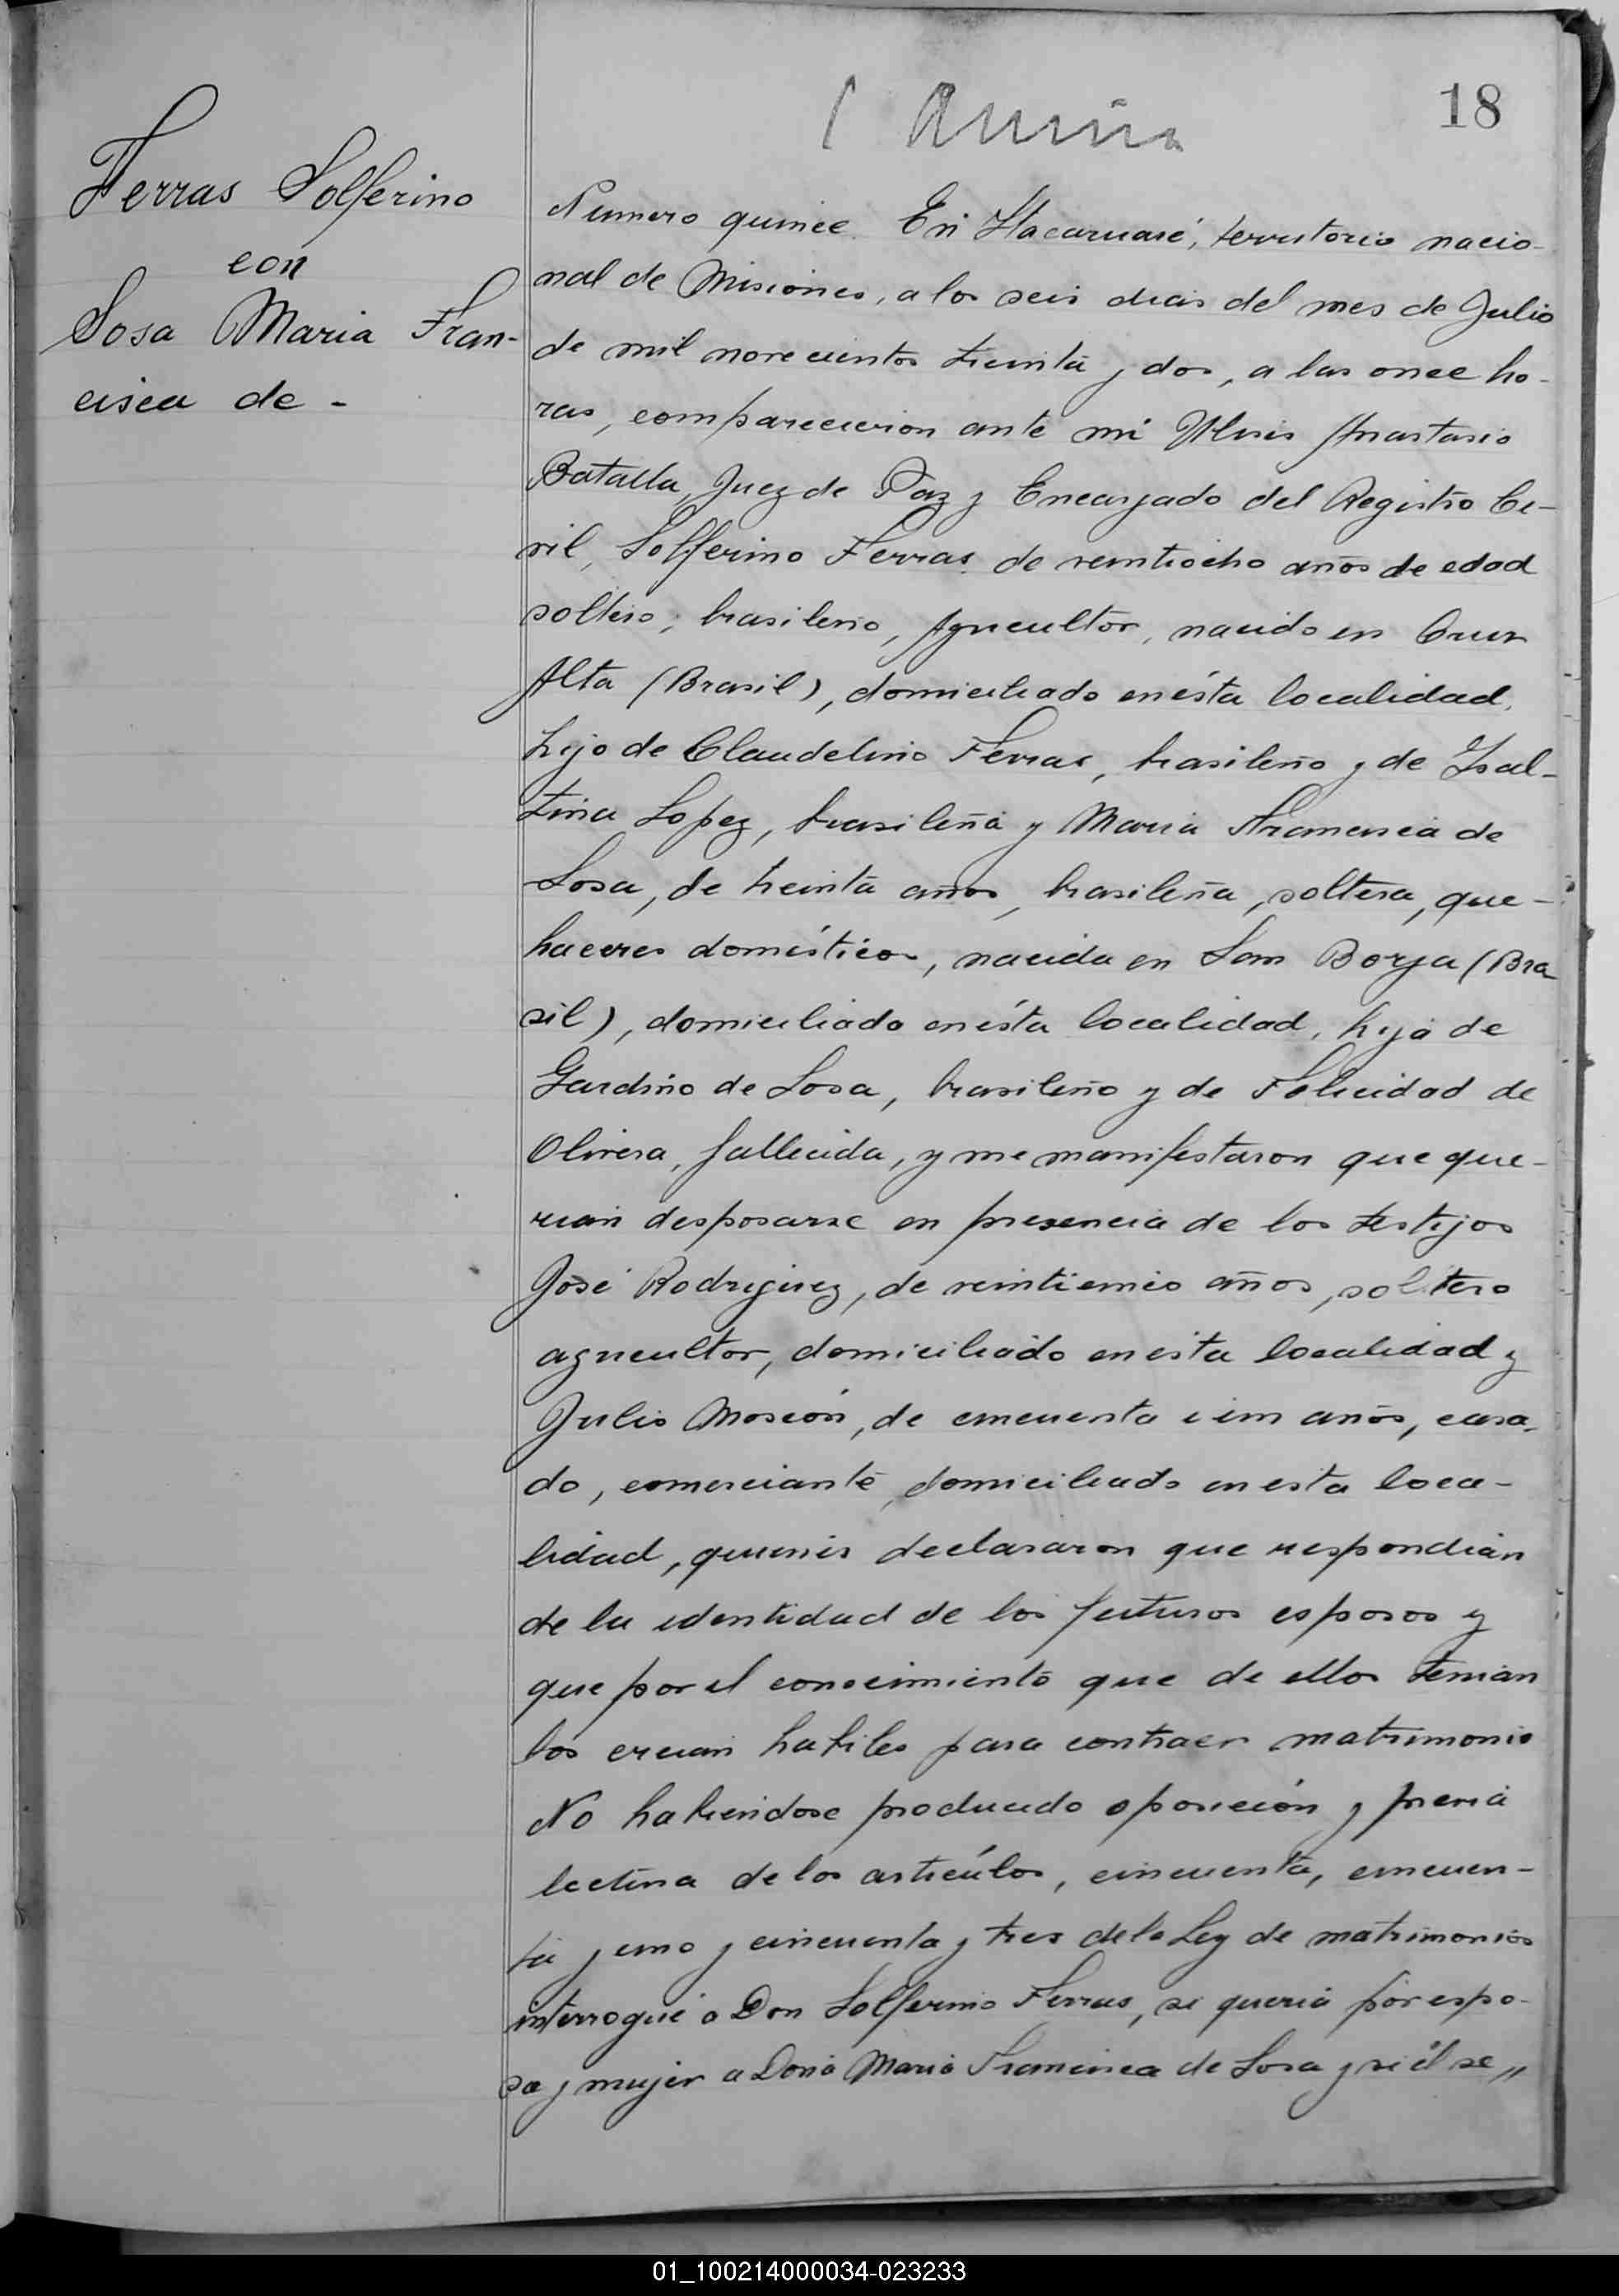 18
Ferras Solferino
con
Sosa Maria Fran-
cisca de -
Numero quince. En Itacaruaré, territorio nacio-
nal de Misiones, a los seis dias del mes de Julio
de mil novecientos treinta y dos, a las once ho-
ras, comparecieron ante mi Ulises Anastasio
Batalla, Juez de Paz y Encargado del Registro Ci-
vil, Solferino Ferras, de veintiocho años de edad
soltero, brasileño, Agricultor, nacido en Cruz
Alta (Brasil), domiciliado en ésta localidad,
hijo de Claudelino Ferras, brasileño y de Isal-
tina Lopez, brasileña y Maria Francisca de
Sosa, de treinta años, brasileña, soltera, que-
haceres domésticos, nacida en San Borja (Bra-
sil), domiciliada en ésta localidad, hija de
Gardino de Sosa, brasileño y de Felicidad de
Olivera, fallecida, y me manifestaron que que-
rian desposarse en presencia de los testigos
José Rodriguez, de veinticinco años, soltero
agricultor, domiciliado en esta localidad y
Julio Moscón, de cincuenta i un años, casa-
do, comerciante, domiciliado en esta loca-
lidad, quienes declararon que respondian
de la identidad de los futuros esposos y
que por el conocimiento que de ellos tenian
los creian habiles para contraer matrimonio
No habiendose producido oposición y previa
lectura de los artículos, cincuenta, cincuen-
ta y uno y cincuenta y tres de la Ley de matrimonios
interrogué a Don Solferino Ferras, si queria por espo-
sa y mujer a Doña Maria Francisca de Sosa y si él se„
01_100214000034-023233